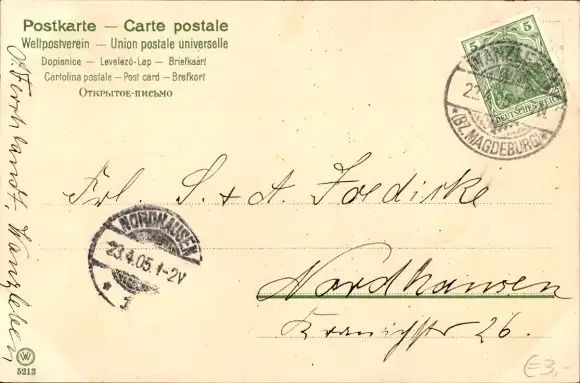 Postkarte — Carte postale
Weltpostverein — Union postale universelle
Dopisnice — Levelező-Lap — Briefkaart
Cartolina postale — Post card — Brefkort
Открытое-письмо
5 5
DEUTSCHES REICH
WANZLEBEN
*(BZ. MAGDEBURG)*
Frl. S. + A. Joedicke
NORDHAUSEN
23.4.05.1-2V
Nordhausen
Kranichstr 26.
Wanzleben
W
5213
€3,-